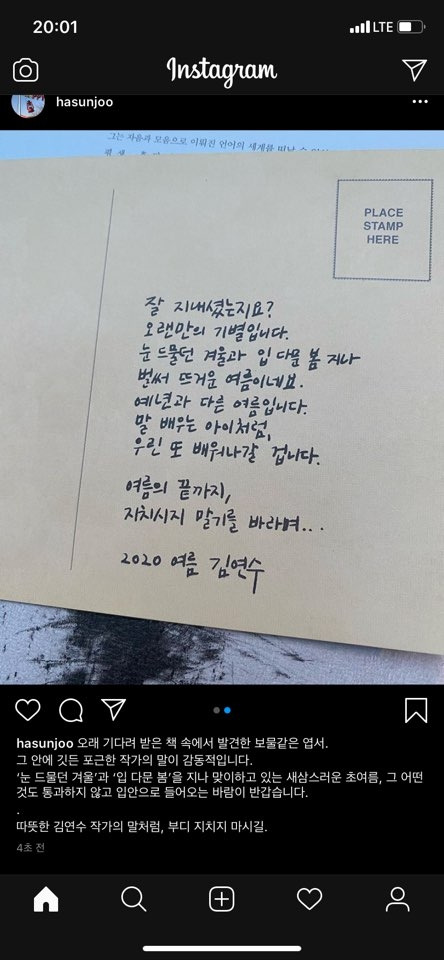 20:01
LTE
Instagram
hasunjoo
그는 자음과 모음으로 이뤄진 언어의 세계를
PLACE
STAMP
HERE
잘 지내셨는지요?
오랜만의 기별입니다.
눈 드물던 겨울과 입 다문 봄 지나
벌써 뜨거운 여름이네요.
예년과 다른 여름입니다.
말 배우는 아이처럼,
우린 또 배워나갈 겁니다.
여름의 끝까지,
지치시지 말기를 바라며...
2020 여름 김연수
hasunjoo 오래 기다려 받은 책 속에서 발견한 보물같은 엽서.
그 안에 깃든 포근한 작가의 말이 감동적입니다.
‘눈 드물던 겨울’과 ‘입 다문 봄’을 지나 맞이하고 있는 새삼스러운 초여름, 그 어떤
것도 통과하지 않고 입안으로 들어오는 바람이 반갑습니다.
.
따뜻한 김연수 작가의 말처럼, 부디 지치지 마시길.
4초 전